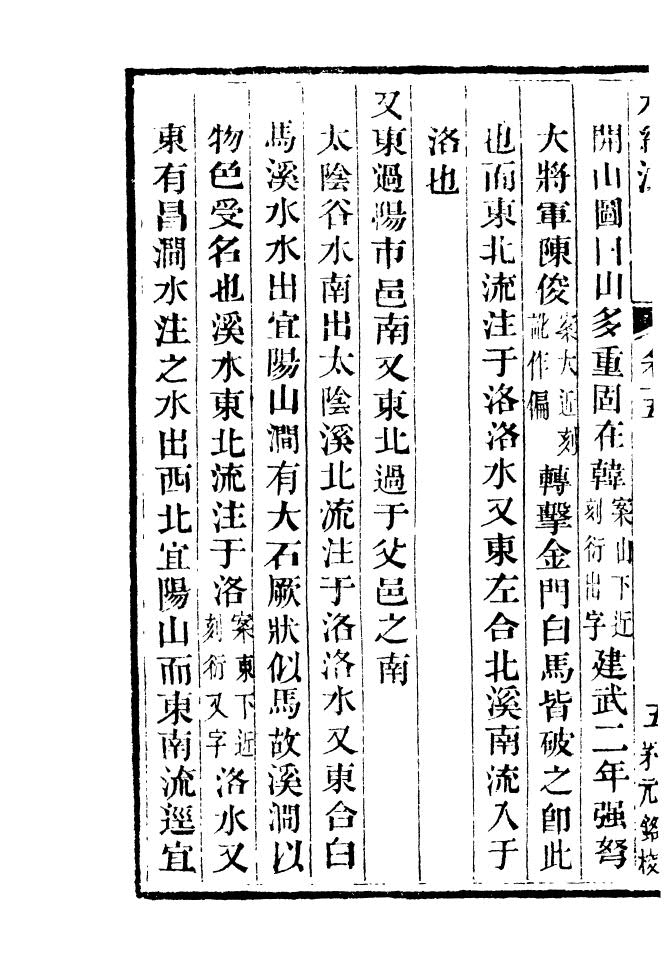 水經注 卷十五 五 茅元銘校
開山圖曰山多重固在韓案山下近刻衍出字建武二年强弩
大將軍陳俊案大近刻訛作偏轉擊金門白馬皆破之卽此
也而東北流注于洛洛水又東左合北溪南流入于
洛也
又東過陽市邑南又東北過于父邑之南
太陰谷水南出太陰溪北流注于洛洛水又東合白
馬溪水水出宜陽山澗有大石厥狀似馬故溪澗以
物色受名也溪水東北流注于洛案東下近刻衍又字洛水又
東有昌澗水注之水出西北宜陽山而東南流逕宜